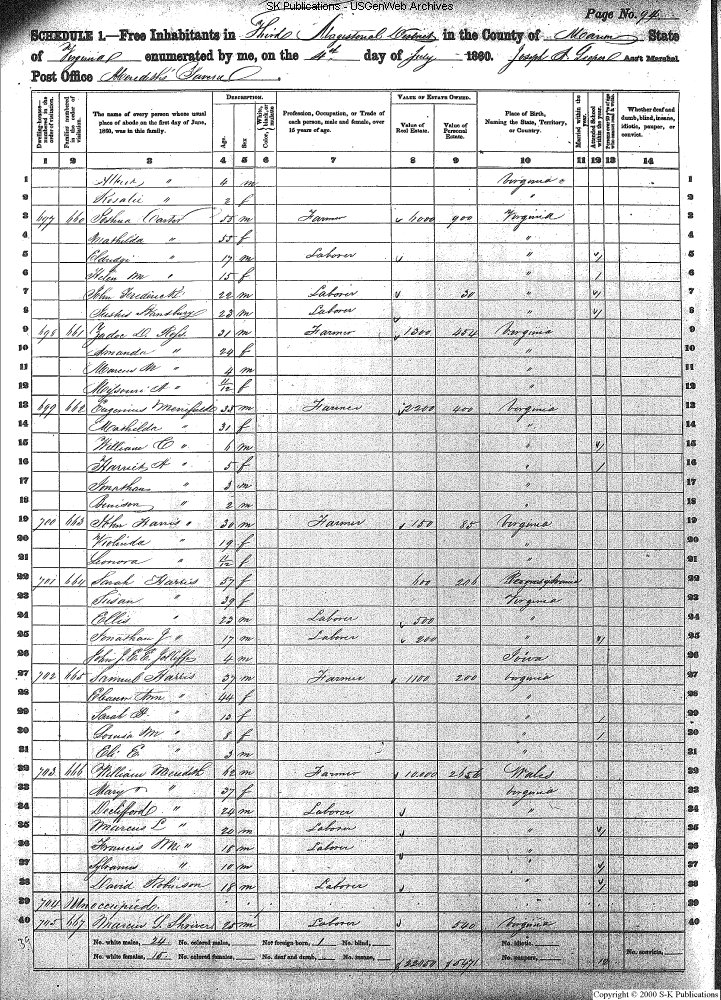 SK Publications - USGenWeb Archives
Page No. 94
SCHEDULE 1.—Free Inhabitants in Third Magisterial District in the County of Marion State
of Virginia enumerated by me, on the 4th day of July 1860. Joseph Ass't Marshal
Post Office
Dwelling-houses—numbered in the order of visitation.
Families numbered in the order of visitation.
The name of every person whose usual place of abode on the first day of June, 1860, was in this family.
DESCRIPTION.
Age.
Sex
Color, White, black, or mulatto
Profession, Occupation, or Trade of each person, male and female, over 15 years of age.
VALUE OF ESTATE OWNED.
Value of Real Estate.
Value of Personal Estate.
Place of Birth, Naming the State, Territory, or Country.
Married within the year.
Attended School within the year.
Whether deaf and dumb, blind, insane, idiotic, pauper, or convict.
1 2 3 4 5 6 7 8 9 10 11 12 13 14
1 " 4 m Virginia 1
2 Rosalie " 2 f " 2
3 697 660 Joshua Carter 55 m Farmer 900 Virginia 3
4 Mathilda " 55 f " 4
5 " 17 m Laborer " 1 5
6 Helen M " 15 f " 1 6
7 John Frederick 22 m Laborer 30 " 1 7
8 23 m Laborer " 1 8
9 698 661 Zadoc D. Ross 31 m Farmer 1300 454 Virginia 9
10 Amanda " 24 f " 10
11 Marcus M " 4 m " 11
12 Missouri A " f " 12
13 699 662 Eugenius Merrifield 35 m Farmer 2200 400 Virginia 13
14 Mathilda " 31 f " 14
15 William C " 6 m " 1 15
16 Harriet A " 5 f " 1 16
17 Jonathan " 3 m " 17
18 " 2 m " 18
19 700 663 John Harris 30 m Farmer 150 85 Virginia 19
20 Violinda " 19 f " 20
21 Leonora " f " 21
22 701 664 Sarah Harris 57 f 600 206 Pennsylvania
23 Susan " 39 f Virginia 23
24 Ellis " 23 m Laborer 500 " 24
25 Jonathan J " 17 m Laborer 200 " 1 25
26 John J. E. E. Jolliffe 4 m Iowa 26
27 702 665 Samuel Harris 37 m Farmer 1100 200 Virginia 27
28 Ann " 44 f " 28
Sarah " 13 f " 1
Louisa M " 8 f " 1
Eli E " 3 m "
703 666 William Meredith 62 m Farmer 10.000 2656 Wales
Mary " 37 f Virginia
" 24 m Laborer "
Marcus L " 20 m Laborer " 1
Francis M " 18 m Laborer "
Sylvanus " 10 m " 1
David Robinson 18 m Laborer " 1
704 Unoccupied
40 705 667 Marcus S. Shriver 25 m Laborer 540 Virginia 40
No. white males, 24 No. colored males, No. foreign born, 1 No. blind, No. idiotic,
No. white females, 15 No. colored females, No. deaf and dumb, No. insane, 22050 5471 No. paupers, 10 No. convicts,
39
Copyright © 2000 S-K Publications